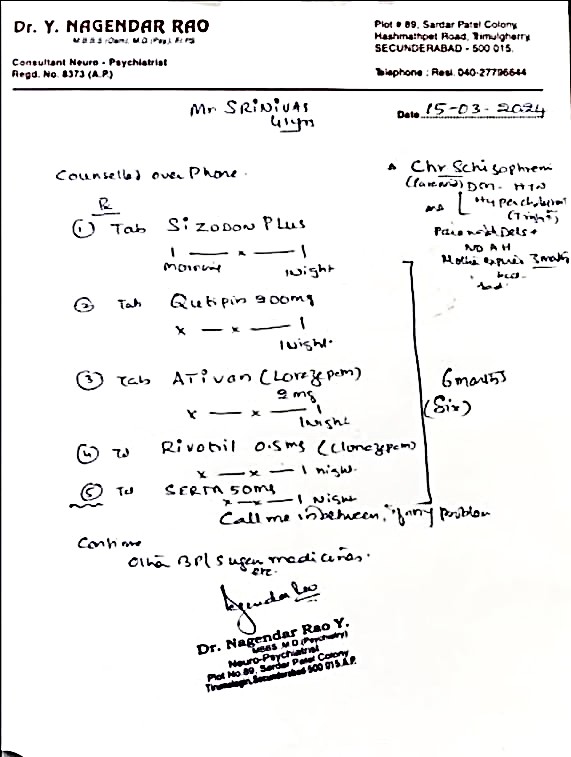 Dr. Y. NAGENDAR RAO
M.B.B.S (Osm), M.D (Psy), F.I.P.S
Consultant Neuro - Psychiatrist
Regd. No. 8373 (A.P.)
Plot # 89, Sardar Patel Colony
Hashmathpet Road, Trimulgherry
SECUNDERABAD - 500 015.
Telephone : Resi. 040-27796644
Mr SRINIVAS
41yrs
Date 15-03-2024
Counselled over Phone.
Chr Schizophreni
(Paranoid) DM. HTN
(Trigly)
Paranoid Dels +
NO AH
Mother expired 3 months
Rx
① Tab SIZODON PLUS
1 — x — 1
Morning 1 Night
② Tab Qutipin 200mg
x — x — 1
1 Night.
③ Tab ATivan (Lorazepam)
2 mg
x — x — 1
1 Night
④ Tab Rivotril 0.5mg (Clonazepam)
x — x — 1 night.
⑤ Tab SERTA 50mg
x — x — 1 Night
6 months
(Six)
Call me inbetween, if any problem
Continue
Other BP/Sugar medicines.
etc.
Nagendar Rao
Dr. Nagendar Rao Y.
MBBS. M D (Psychiatry)
Neuro-Psychiatrist
Plot No 89, Sardar Patel Colony
Trimulgiri, Secunderabad 500 015 A.P.